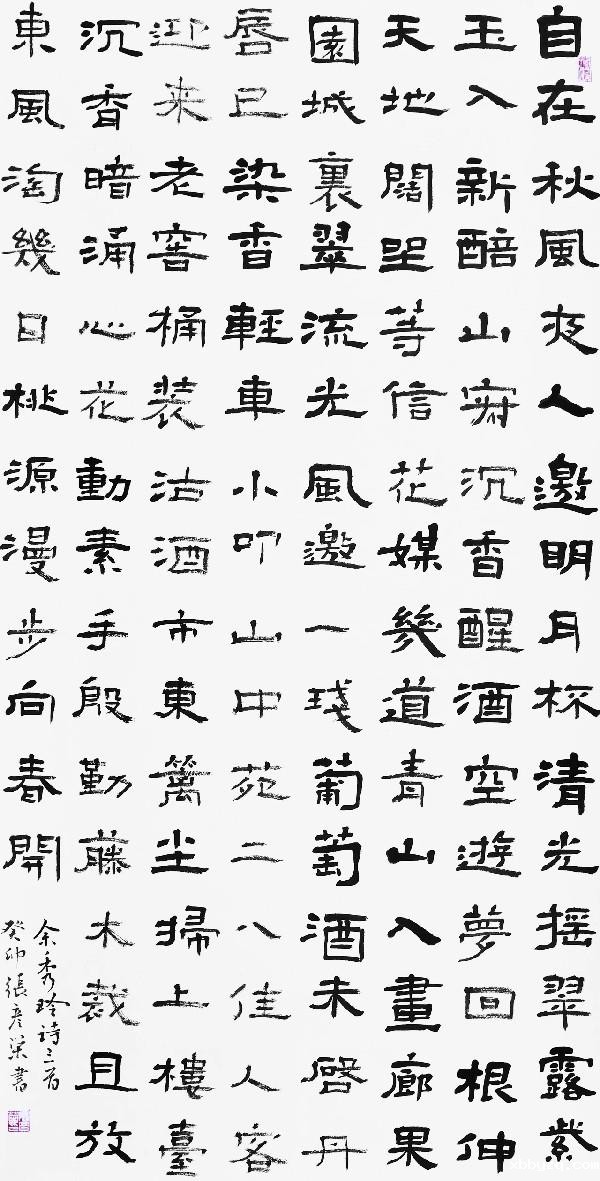 自在秋風夜人邀明月杯清光摇翠露紫
玉入新醅山府沉香醒酒空遊夢回根伸
天地闊坐等信花媒幾道青山入畫廊果
園城裏翠流光風邀一琖葡萄酒未啓丹
唇已染香輕車小叩山中苑二八佳人客
迎来老窖桶装沽酒市東籬尘掃上樓臺
沉香暗涌心花動素手殷勤藤木裁且放
東風淘幾日桃源漫步向春開
余秀玲詩三首
癸卯張彦榮書